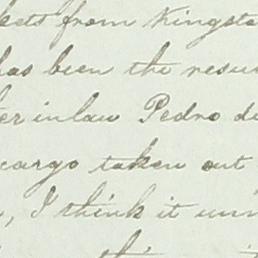 from Kingsto
has been the resu
er in law Pedro d
cargo taken out
, I think it un